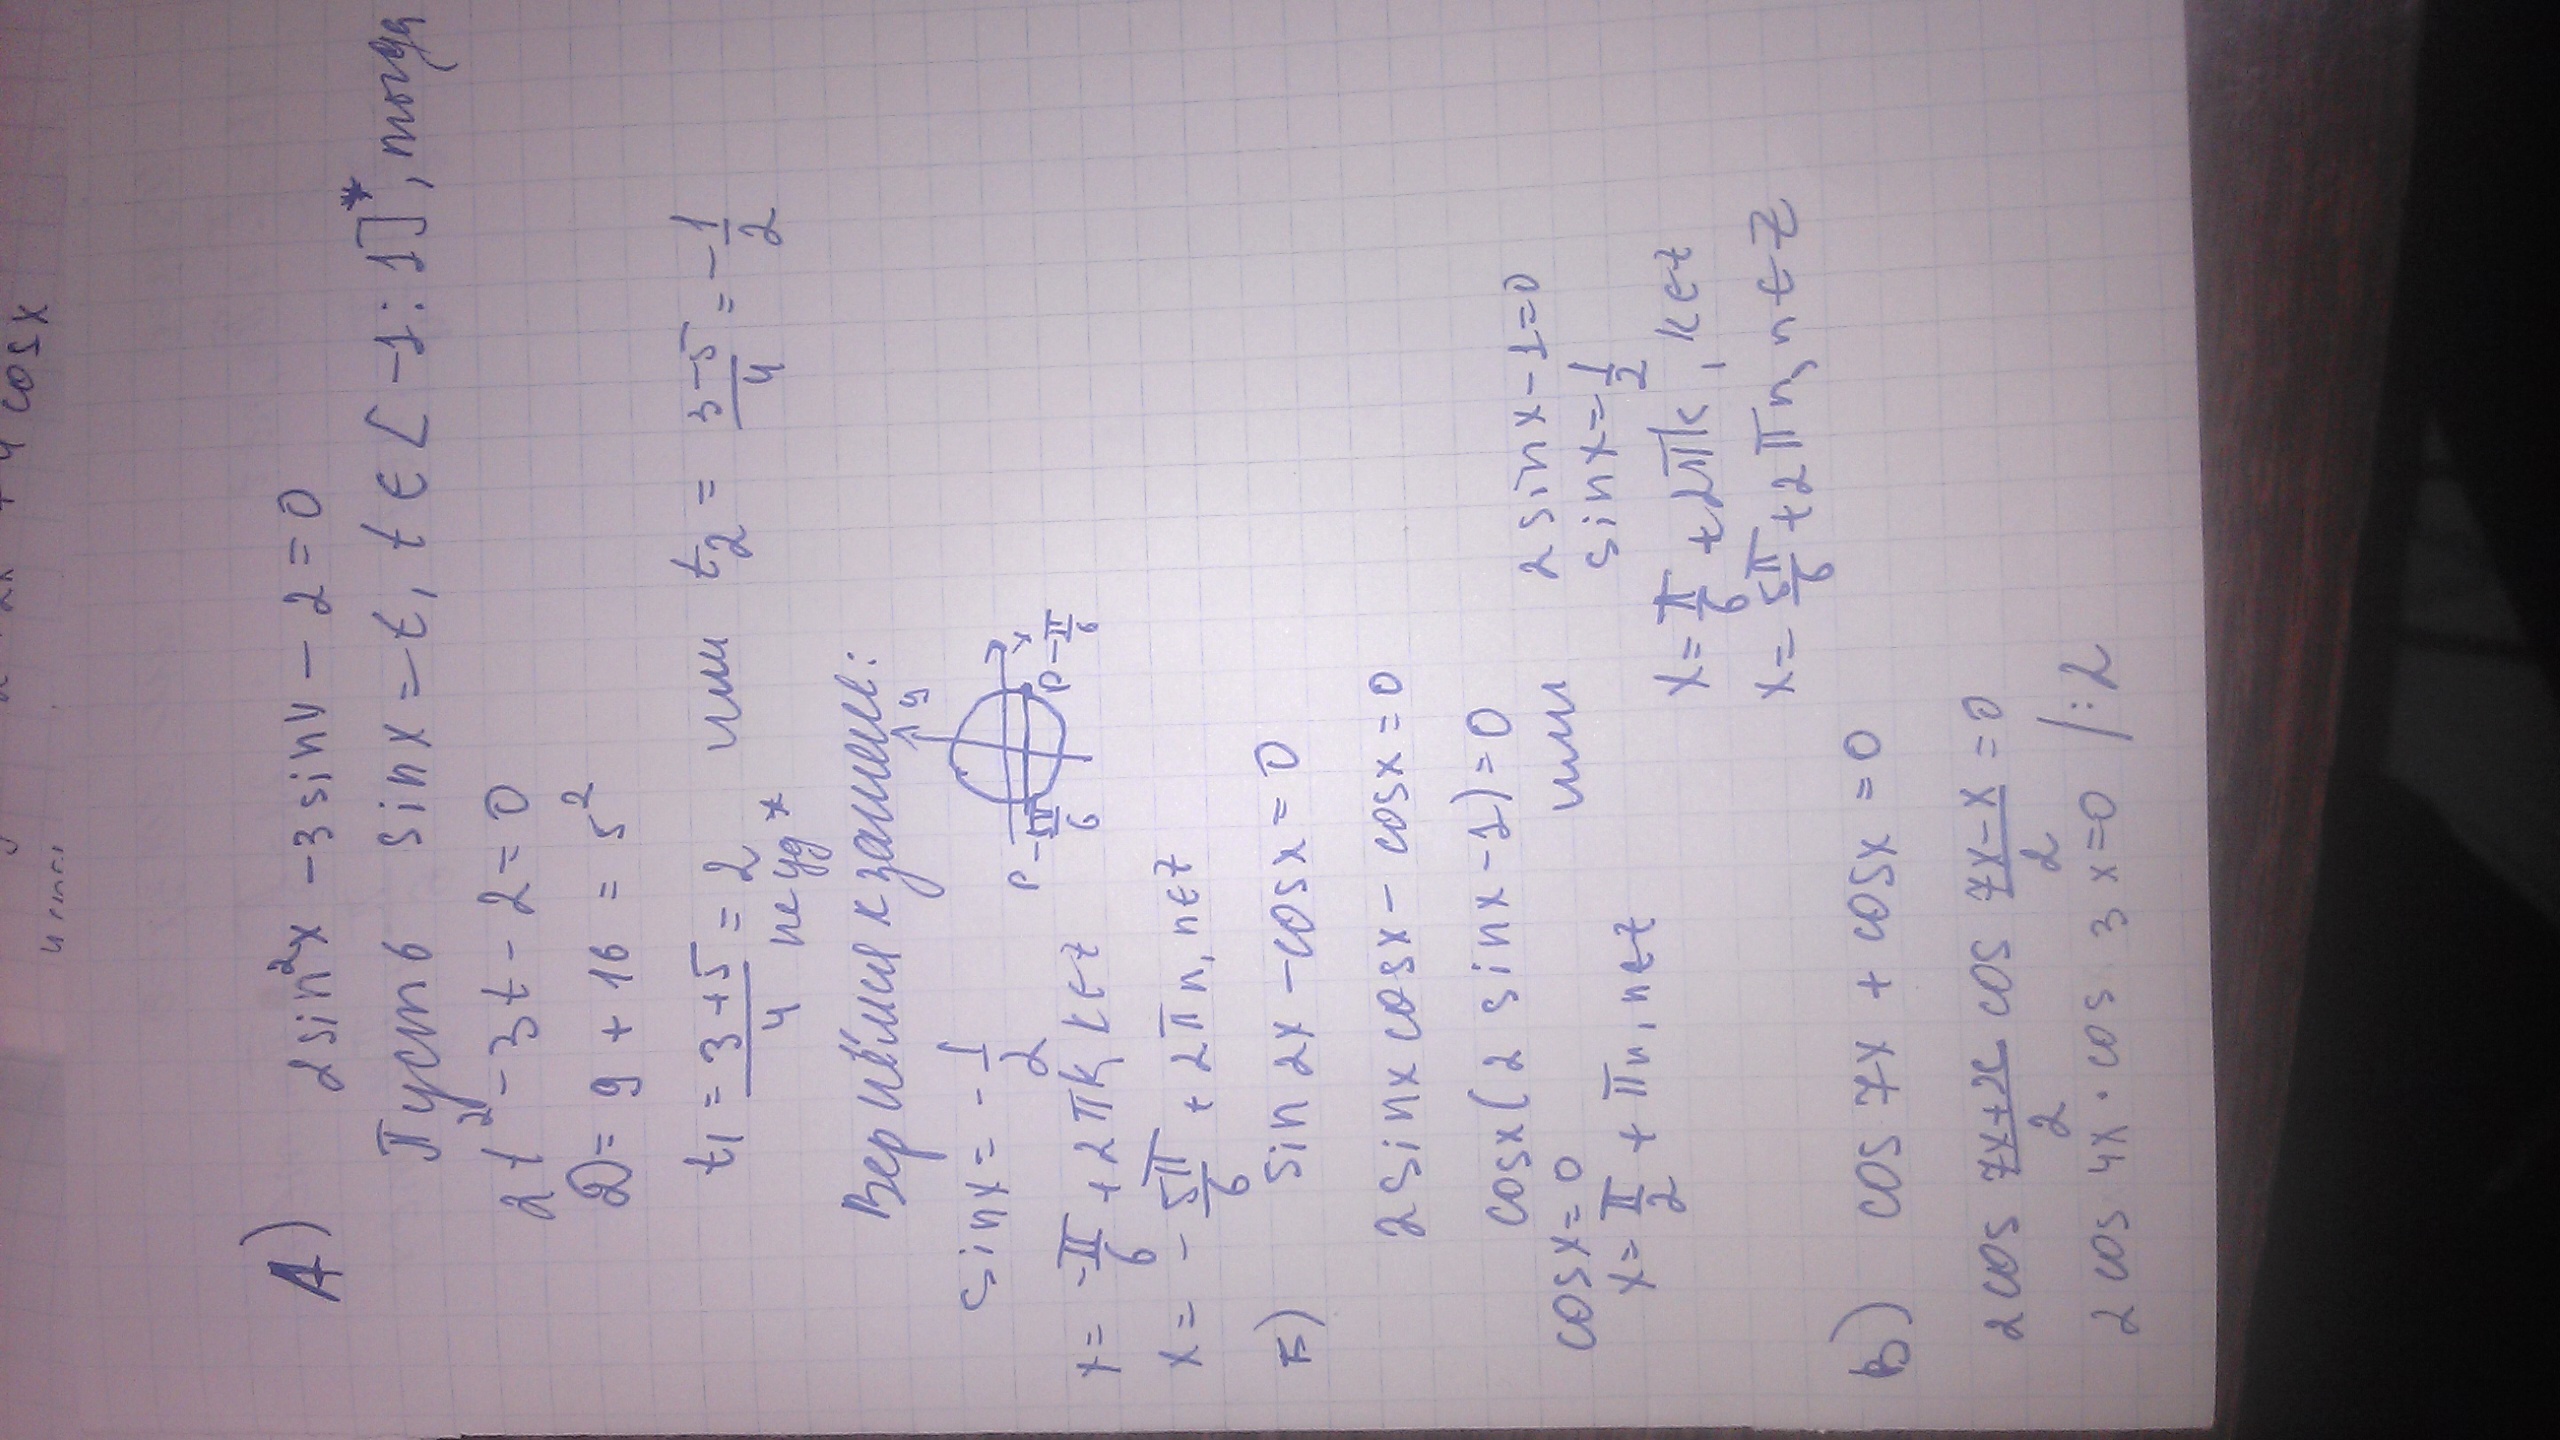 cos x
А) 2 sin²x - 3 sin x - 2 = 0
Пусть sin x = t, t ∈ [-1 : 1]*, тогда
2t² - 3t - 2 = 0
D = 9 + 16 = 5²
t₁ = (3+5)/4 = 2 или t₂ = (3-5)/4 = -1/2
не уд *
Вернёмся к замене:
sin x = - 1/2
y
x
P -π/6
P -5π/6
x = -π/6 + 2πk, k∈Z
x = - 5π/6 + 2πn, n∈Z
Б) sin 2x - cos x = 0
2 sin x cos x - cos x = 0
cos x (2 sin x - 1) = 0
cos x = 0 или 2 sin x - 1 = 0
x = π/2 + πn, n∈Z sin x = 1/2
x = π/6 + 2πk, k∈Z
x = 5π/6 + 2πn, n∈Z
В) cos 7x + cos x = 0
2 cos (7x+x)/2 cos (7x-x)/2 = 0
2 cos 4x · cos 3x = 0 /:2